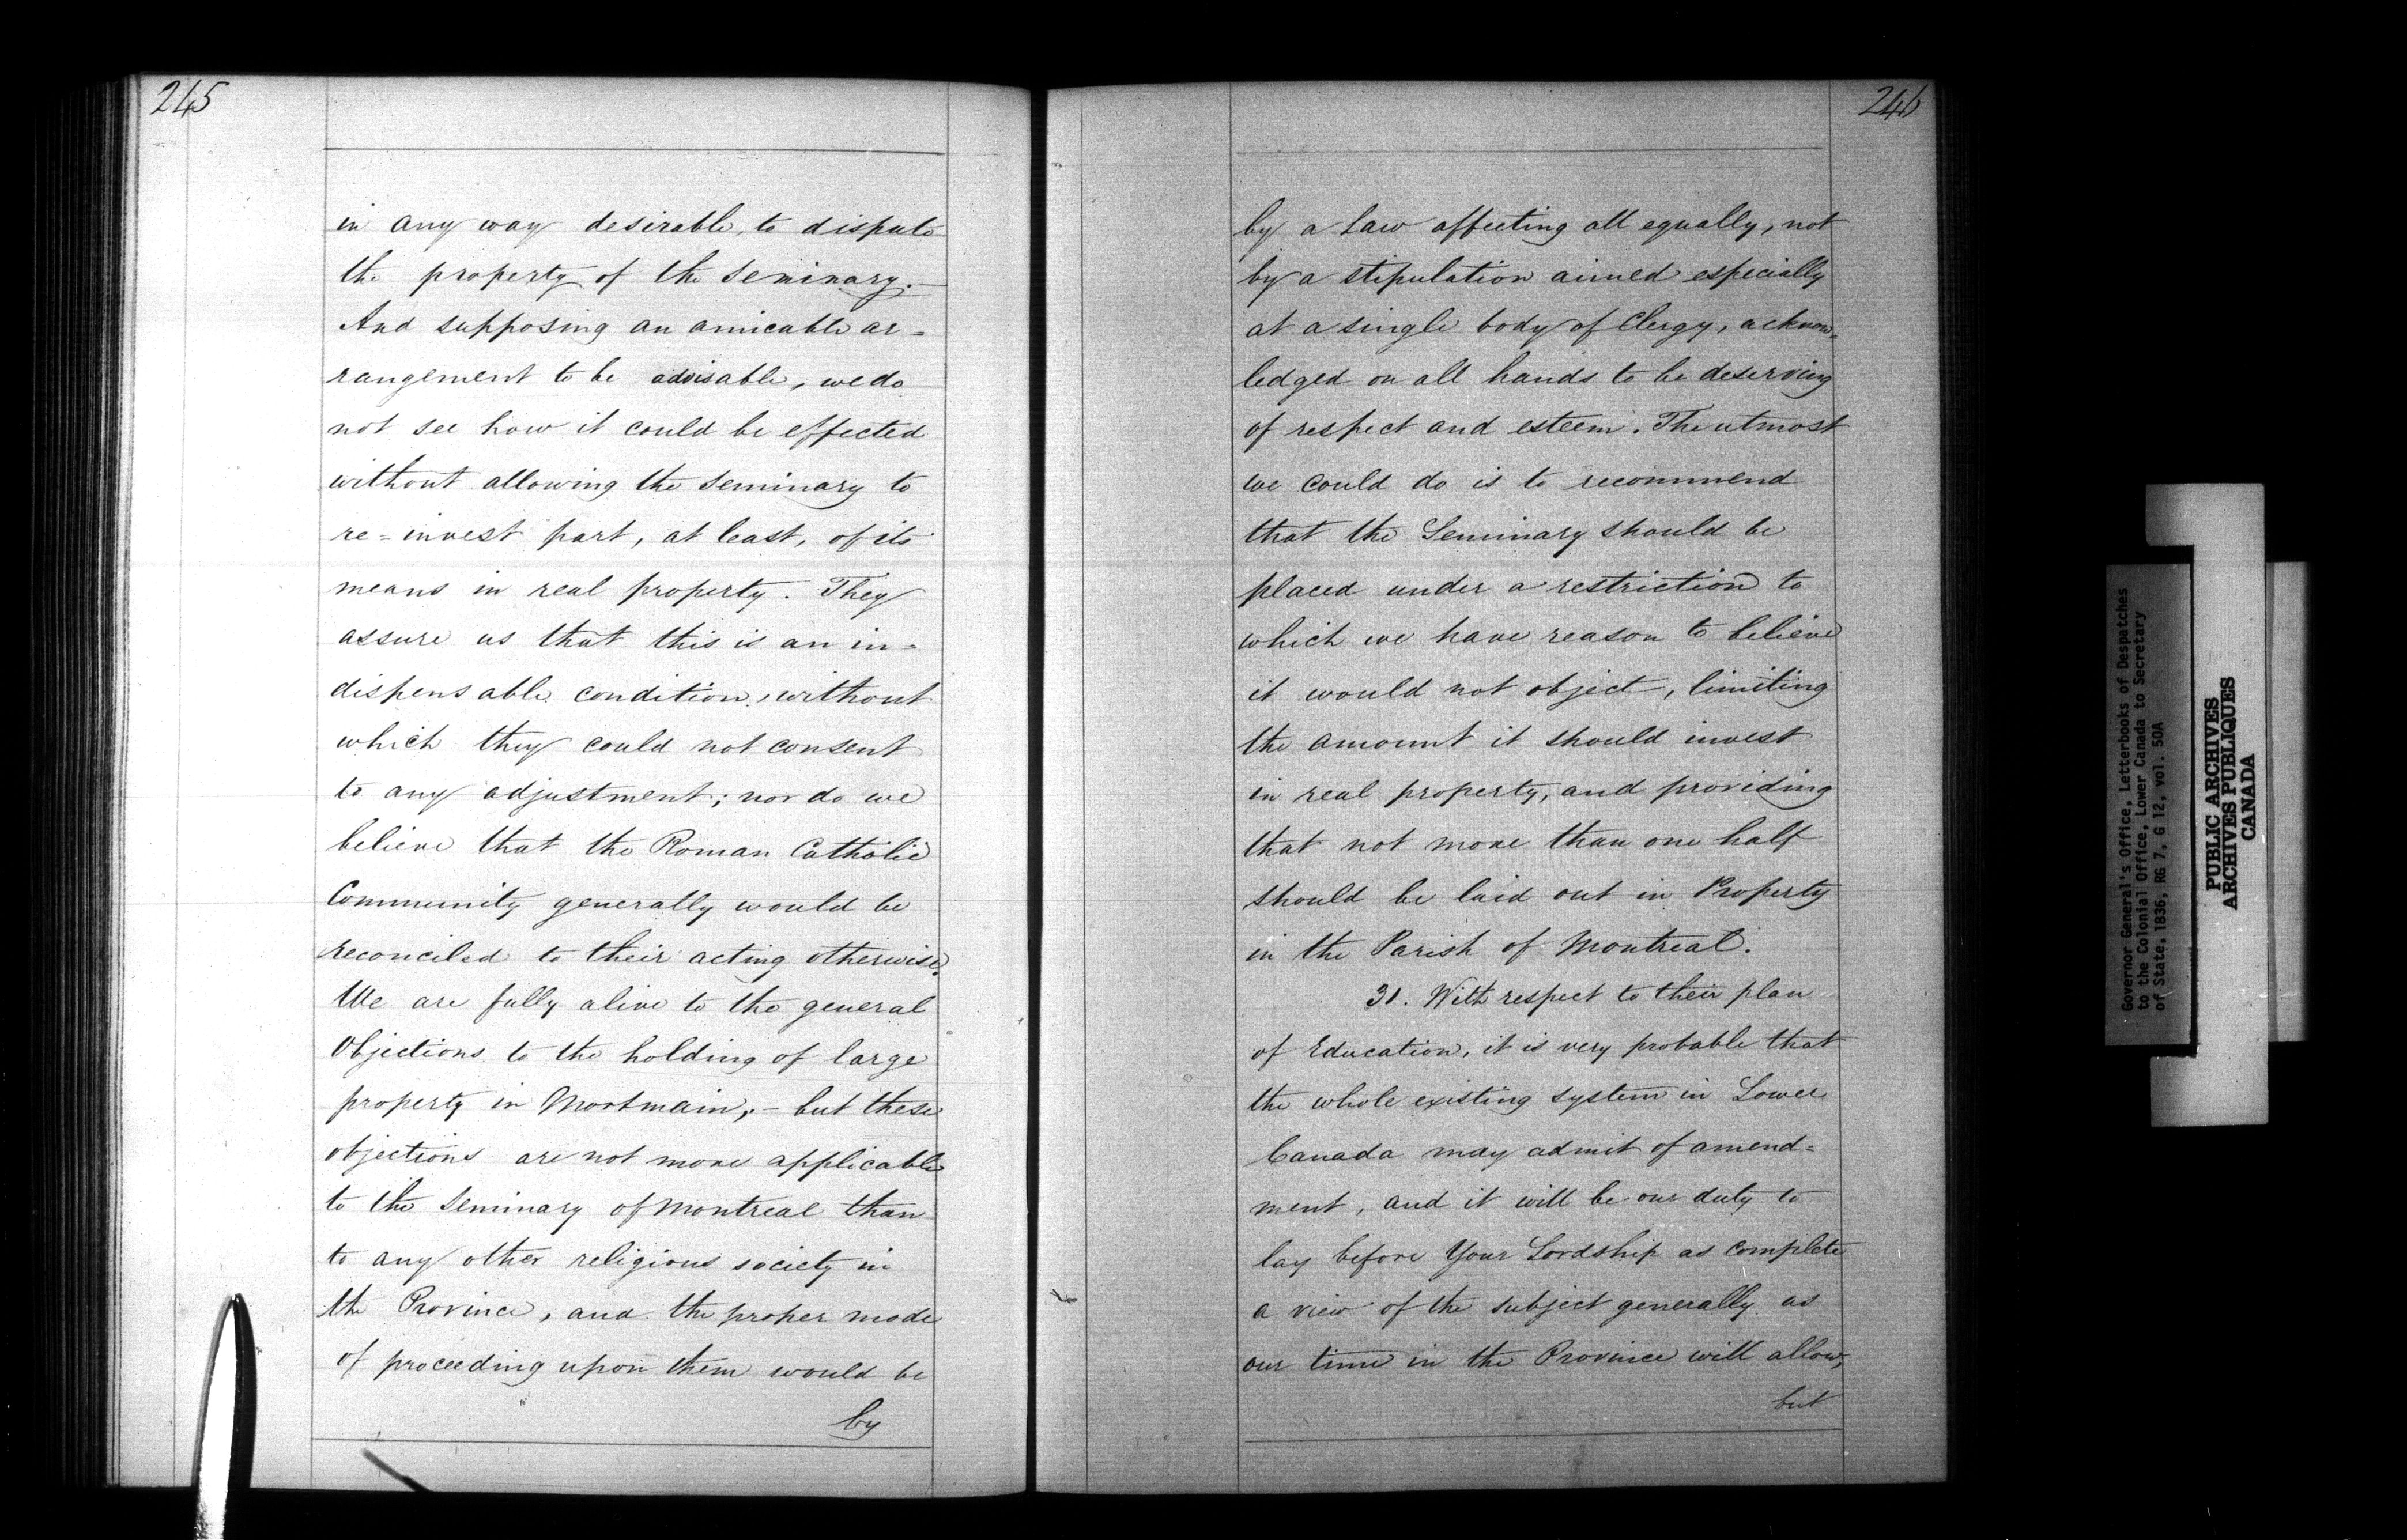 245
in any way desirable, to dispute
the property of the Seminary.—
And supposing an amicable ar=
rangement to be advisable, we do
not see how it could be effected
without allowing the Seminary to
re=invest part, at least, of its
means in real property. They
assure us that this is an in=
dispensable condition, without
which they could not consent
to any adjustment; nor do we
believe that the Roman Catholic
Community generally would be
reconciled to their acting otherwise.
We are fully alive to the general
Objections to the holding of large
property in Mortmain,— but these
objections are not more applicable
to the Seminary of Montreal than
to any other religious society in
the Province, and the proper mode
of proceeding upon them would be
by
246
by a Law affecting all equally, not
by a stipulation aimed especially
at a single body of Clergy, acknow=
ledged on all hands to be deserving
of respect and esteem. The utmost
we could do is to recommend
that the Seminary should be
placed under a restriction to
which we have reason to believe
it would not object, limiting
the amount it should invest
in real property, and providing
that not more than one half
should be laid out in Property
in the Parish of Montreal.
31. With respect to their plan
of Education, it is very probable that
the whole existing system in Lower
Canada may admit of amend=
ment, and it will be our duty to
lay before Your Lordship as complete
a view of the subject generally as
our time in the Province will allow,
but
Governor General's Office, Letterbooks of Despatches
to the Colonial Office, Lower Canada to Secretary
of State, 1836, RG 7, G 12, vol. 50A
PUBLIC ARCHIVES
ARCHIVES PUBLIQUES
CANADA